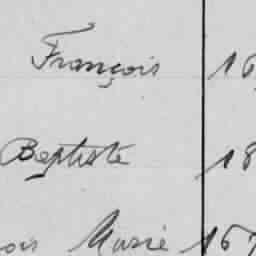 François 16
Baptiste 18
ois Marie 167